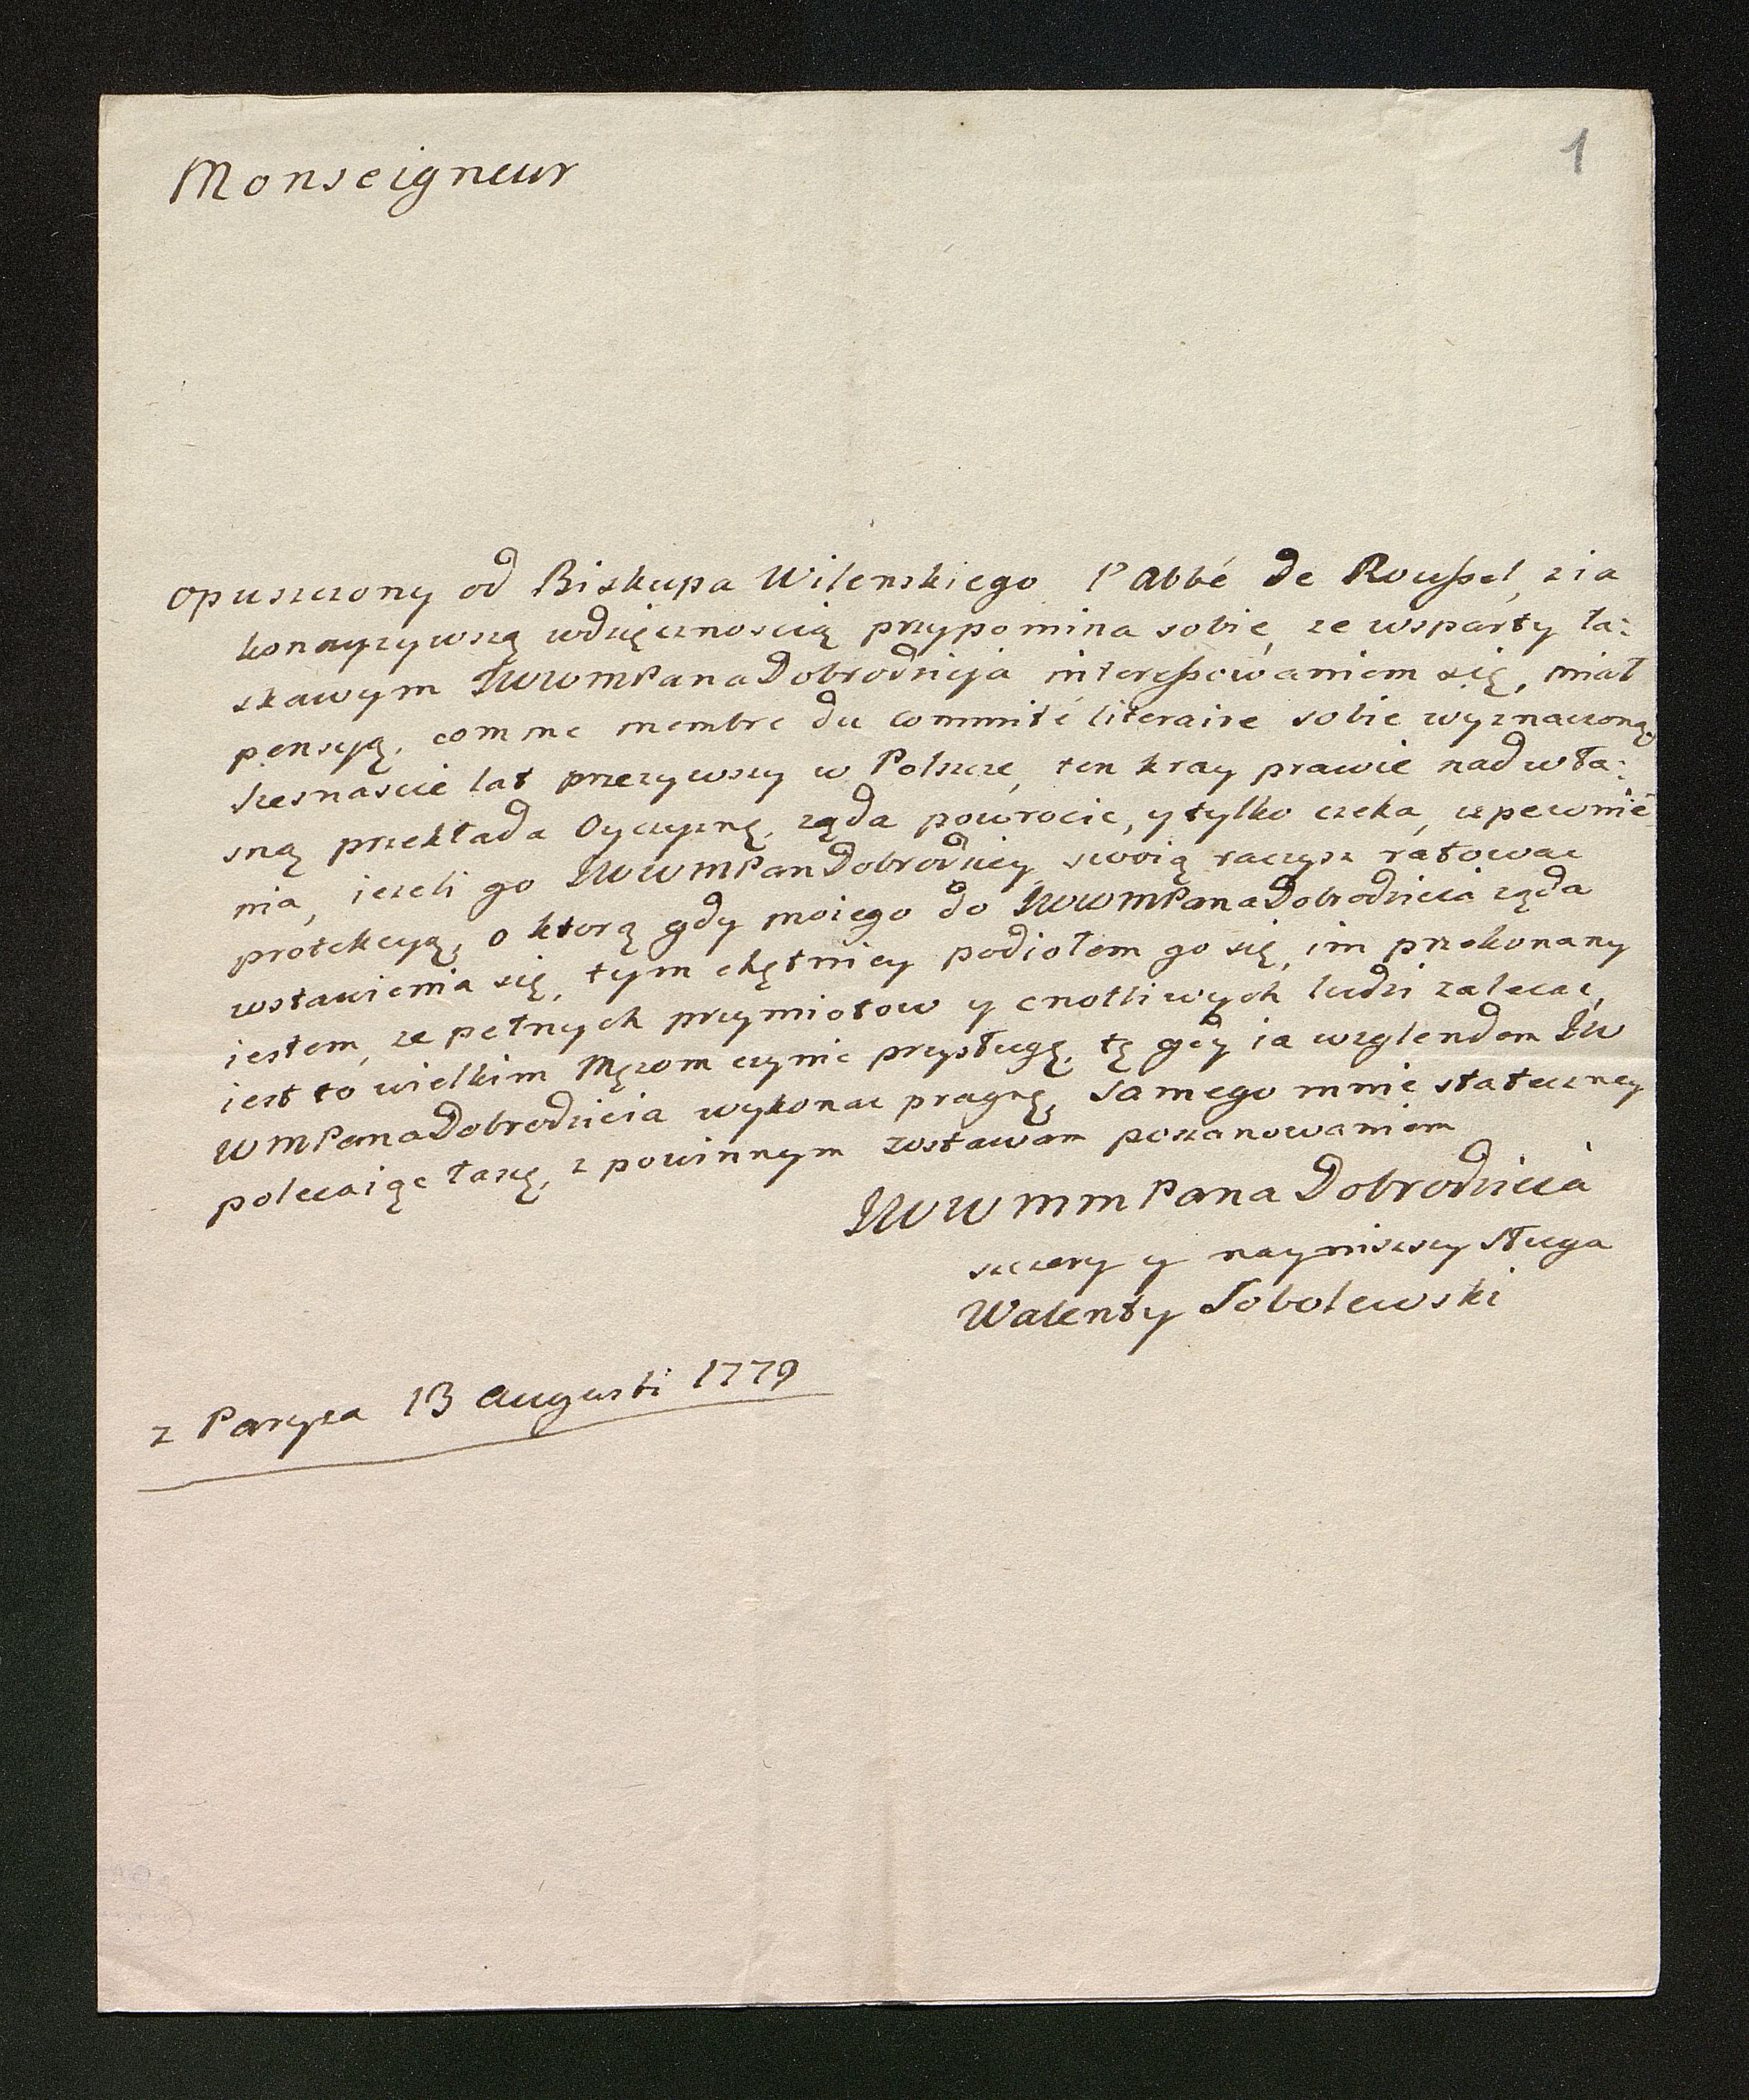 1
Monseigneur
opuszczony od Biskupa Wilenskiego l'Abbé de Roussel, z ia
konayzywszą wdzięcznoscią przypomina sobie, ze wsparty ła:
skawym JWWMPanaDobrodzieja interessowaniem się, miał
pensyą, comme membre du committé literaire sobie wyznaczoną,
szesnascie lat przezywszy w Polszcze, ten kray prawie nad wła:
sną przekłada Oyczyznę, ząda powrocic, y tylko czeka, uspewnie
nia, iezeli go JWWMPanDobrodziey swoią raczysz ratowac
protekcyą, o ktorą gdy moiego do JWWMPanaDobrodzieia ząda
wstawienia się, tym chętniey podiołem go się, im przekonany
iestem, ze pełnych przymiotow y cnotliwych ludzi zalecac,
iest to wielkim Męzom czynic przysługę, tę gdy ia względem JW
WMPanaDobrodzieia wykonac pragnę, samego mnie stateczney
polecaiąc łasce, z powinnym zostawam poszanowaniem
JWWMMPana Dobrodzieia
szczery y naynizszy sługa
Walenty Sobolewski
z Paryza 13 Augusti 1779